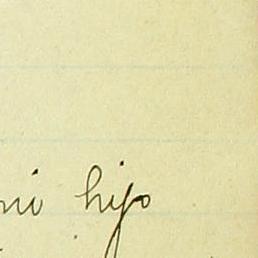 mi hijo